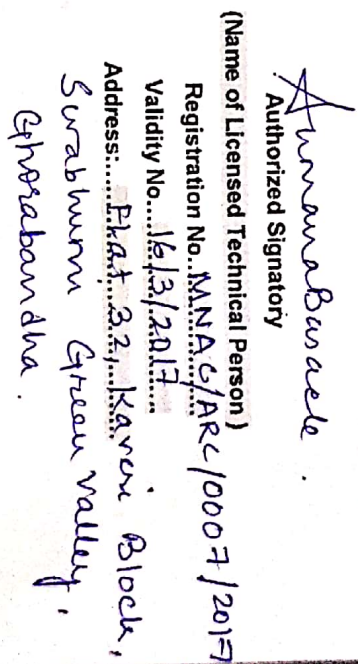 Authorized Signatory
(Name of Licensed Technical Person)
Registration No...MNAC/ARC/0007/2017
Validity No....16/3/2017.....
Address:.....Phat 32, Kaveri Block,
Surabhumi Green Valley,
Ghorabandha.